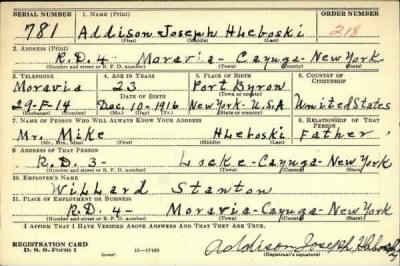 SERIAL NUMBER 1. NAME (Print) ORDER NUMBER
781 Addison Joseph Hleboski 218
(First) (Middle) (Last)
2. ADDRESS (Print)
R.D. 4- Moravia- Cayuga- New York
(Number and street or R. F. D. number) (Town) (County) (State)
3. TELEPHONE 4. AGE IN YEARS 5. PLACE OF BIRTH 6. COUNTRY OF CITIZENSHIP
Moravia 23 Port Byron
DATE OF BIRTH (Town or county)
29-F-14 Dec. 10-1916 New York- U.S.A United States
(Exchange) (Number) (Mo.) (Day) (Yr.) (State or country)
7. NAME OF PERSON WHO WILL ALWAYS KNOW YOUR ADDRESS 8. RELATIONSHIP OF THAT PERSON
Mr. Mike Hleboski Father
(Mr., Mrs., Miss) (First) (Middle) (Last)
9. ADDRESS OF THAT PERSON
R.D. 3- Locke- Cayuga- New York
(Number and street or R. F. D. number) (Town) (County) (State)
10. EMPLOYER'S NAME
Willard Stanton
11. PLACE OF EMPLOYMENT OR BUSINESS
R.D. 4- Moravia- Cayuga- New York
(Number and street or R. F. D. number) (Town) (County) (State)
I AFFIRM THAT I HAVE VERIFIED ABOVE ANSWERS AND THAT THEY ARE TRUE.
REGISTRATION CARD
D. S. S. Form 1 (over) 16-17105 Addison Joseph Hleboski
(Registrant's signature)